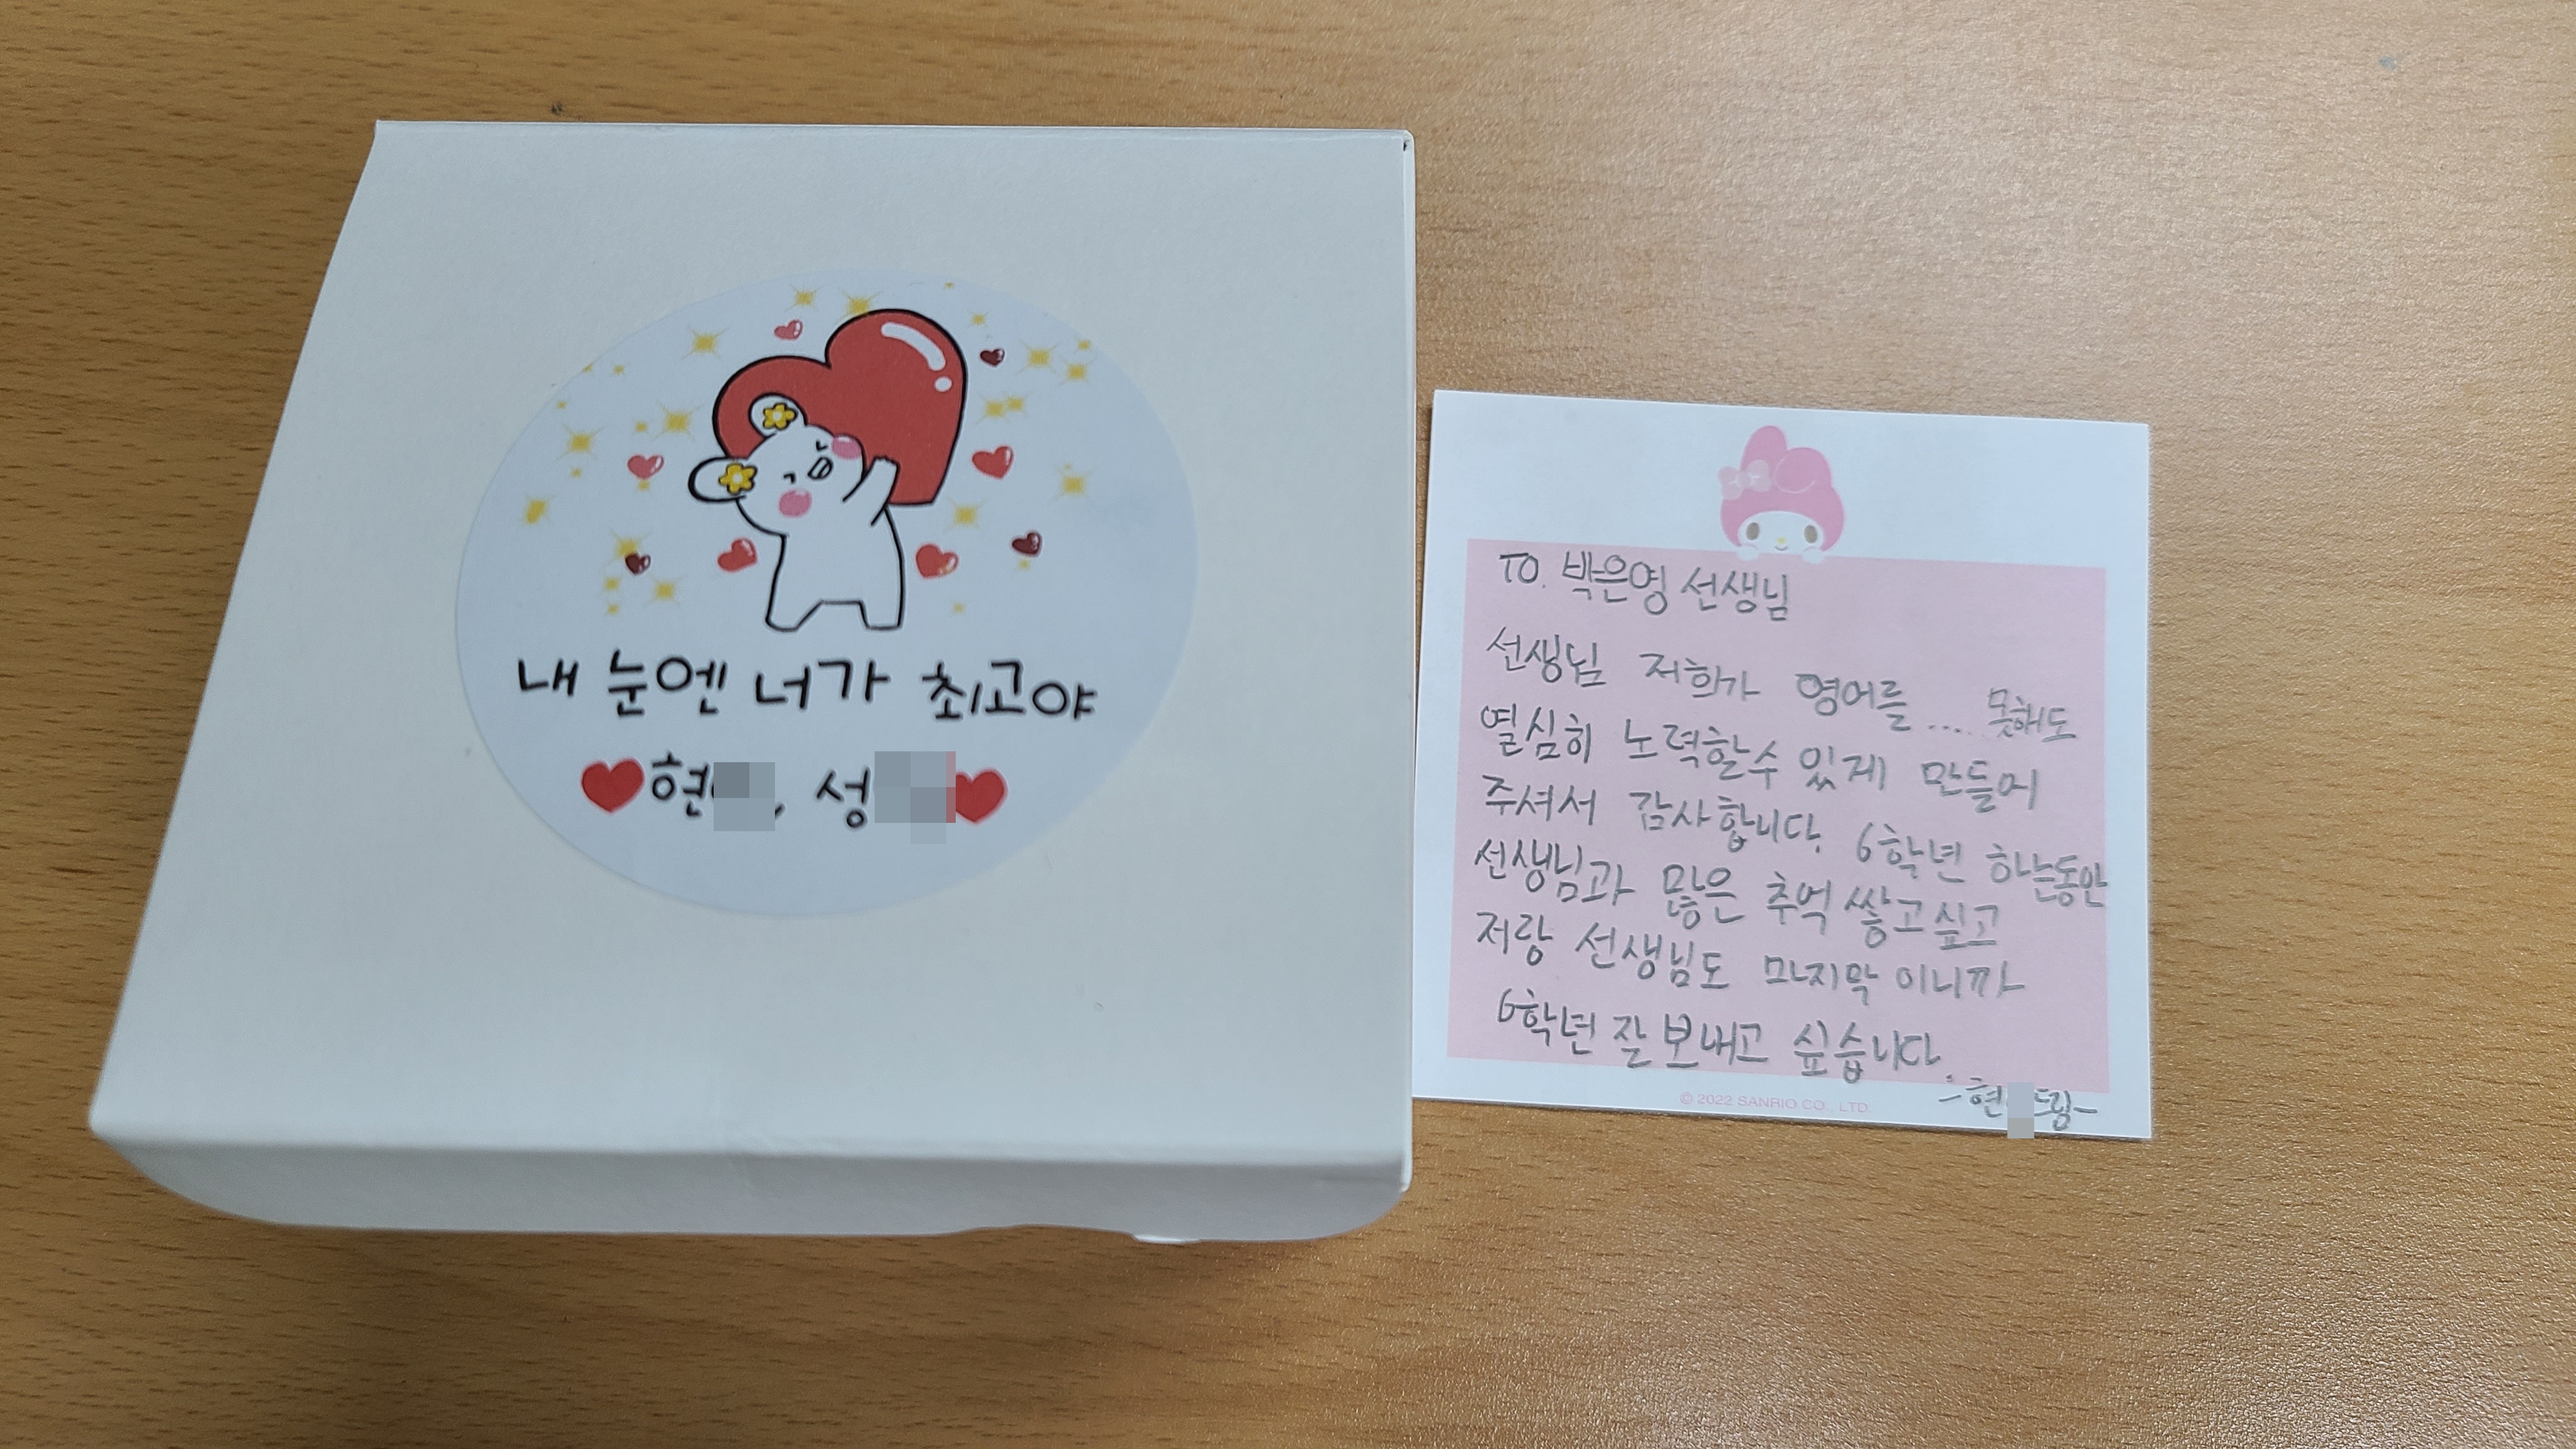 내 눈엔 너가 최고야
현 , 성
TO. 박은영 선생님
선생님 저희가 영어를.... 못해도
열심히 노력할수 있게 만들어
주셔서 감사합니다. 6학년 하는동안
선생님과 많은 추억 쌓고싶고
저랑 선생님도 마지막 이니까
6학년 잘 보내고 싶습니다.
-현 드림-
© 2022 SANRIO CO., LTD.